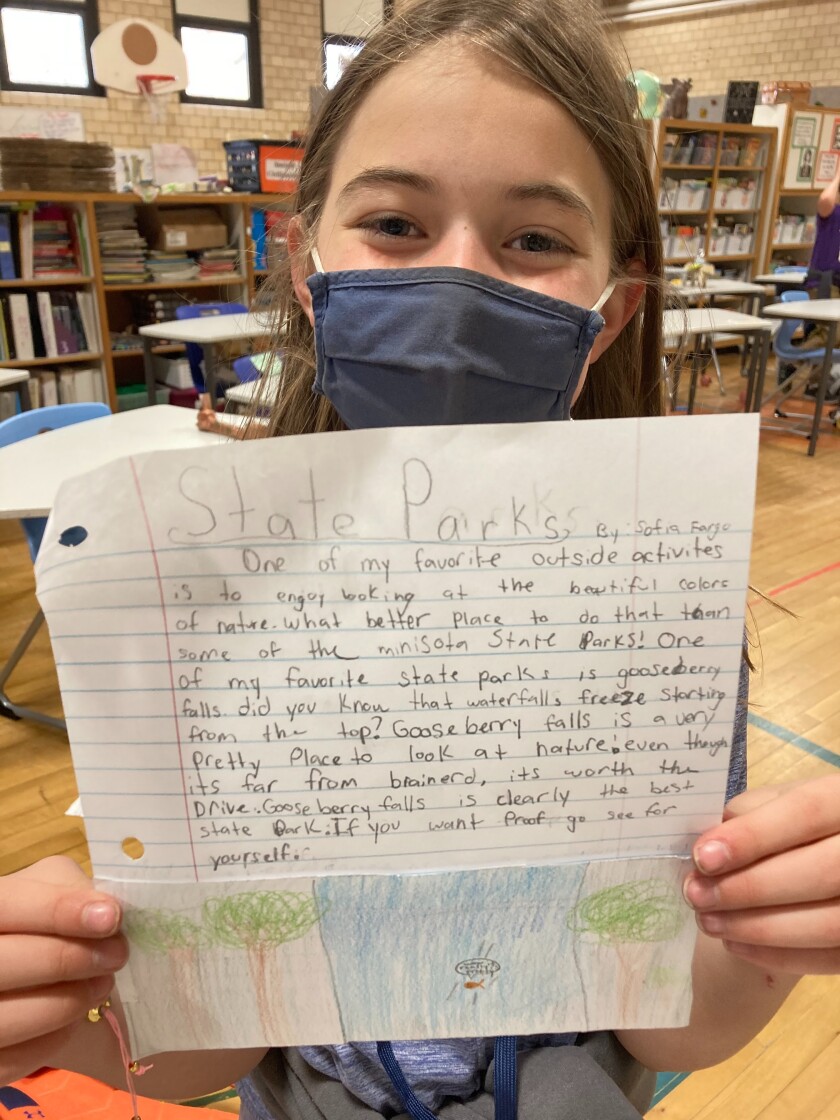 State Parks, By: Sofia Fargo
One of my favorite outside activites
is to engoy looking at the beutiful colors
of nature. What better place to do that than
some of the minisota State Parks! One
of my favorite state parks is gooseberry
falls. did you know that waterfalls freeze starting
from the top? Gooseberry falls is a very
pretty place to look at nature! even though
its far from brainerd, its worth the
Drive. Gooseberry falls is clearly the best
state Park. If you want proof go see for
yourself.